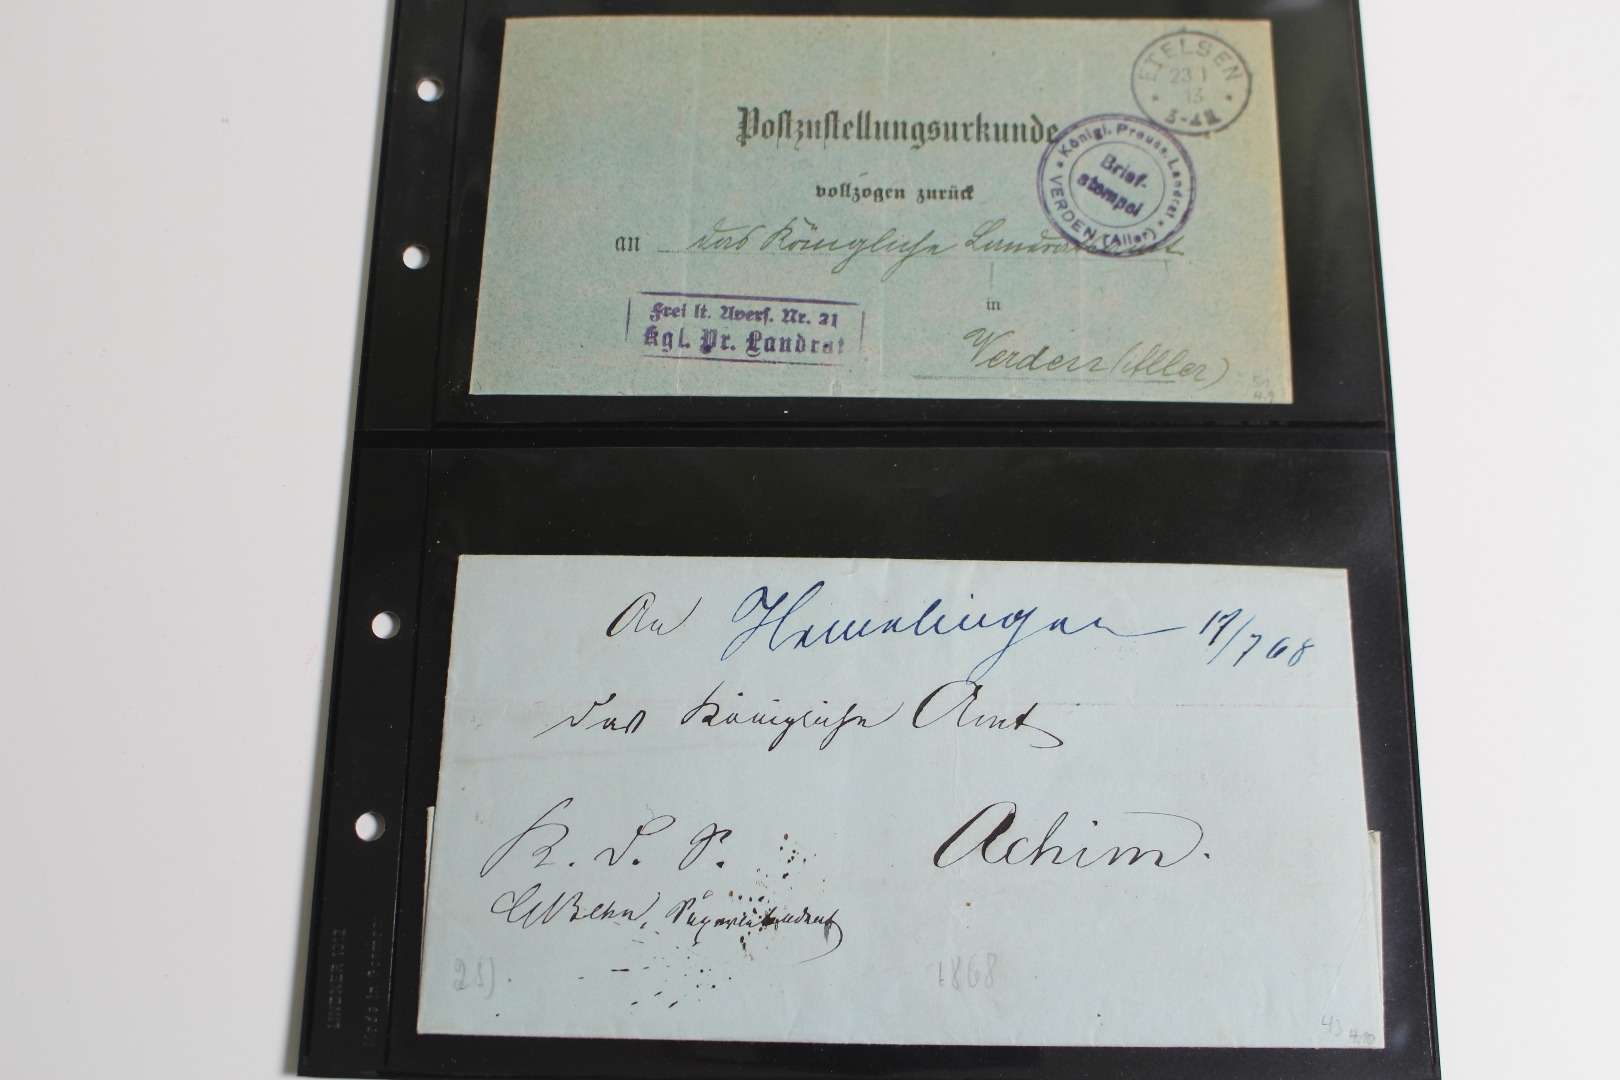 ETELSEN
23 1
13
3-4 N
Postzustellungsurkunde
Königl. Preuss. Landrat
Brief-
stempel
VERDEN (Aller)
vollzogen zurück
an das Königliche Landratsamt
in
Frei lt. Avers. Nr. 21
Kgl. Pr. Landrat
Verden (Aller)
51
4.9
An Hemelingen 17/7 68
das Königliche Amt
Achim.
K. D. S.
Superintendent
25).
1868
43 4.10
LINDNER 1312
Made in Germany